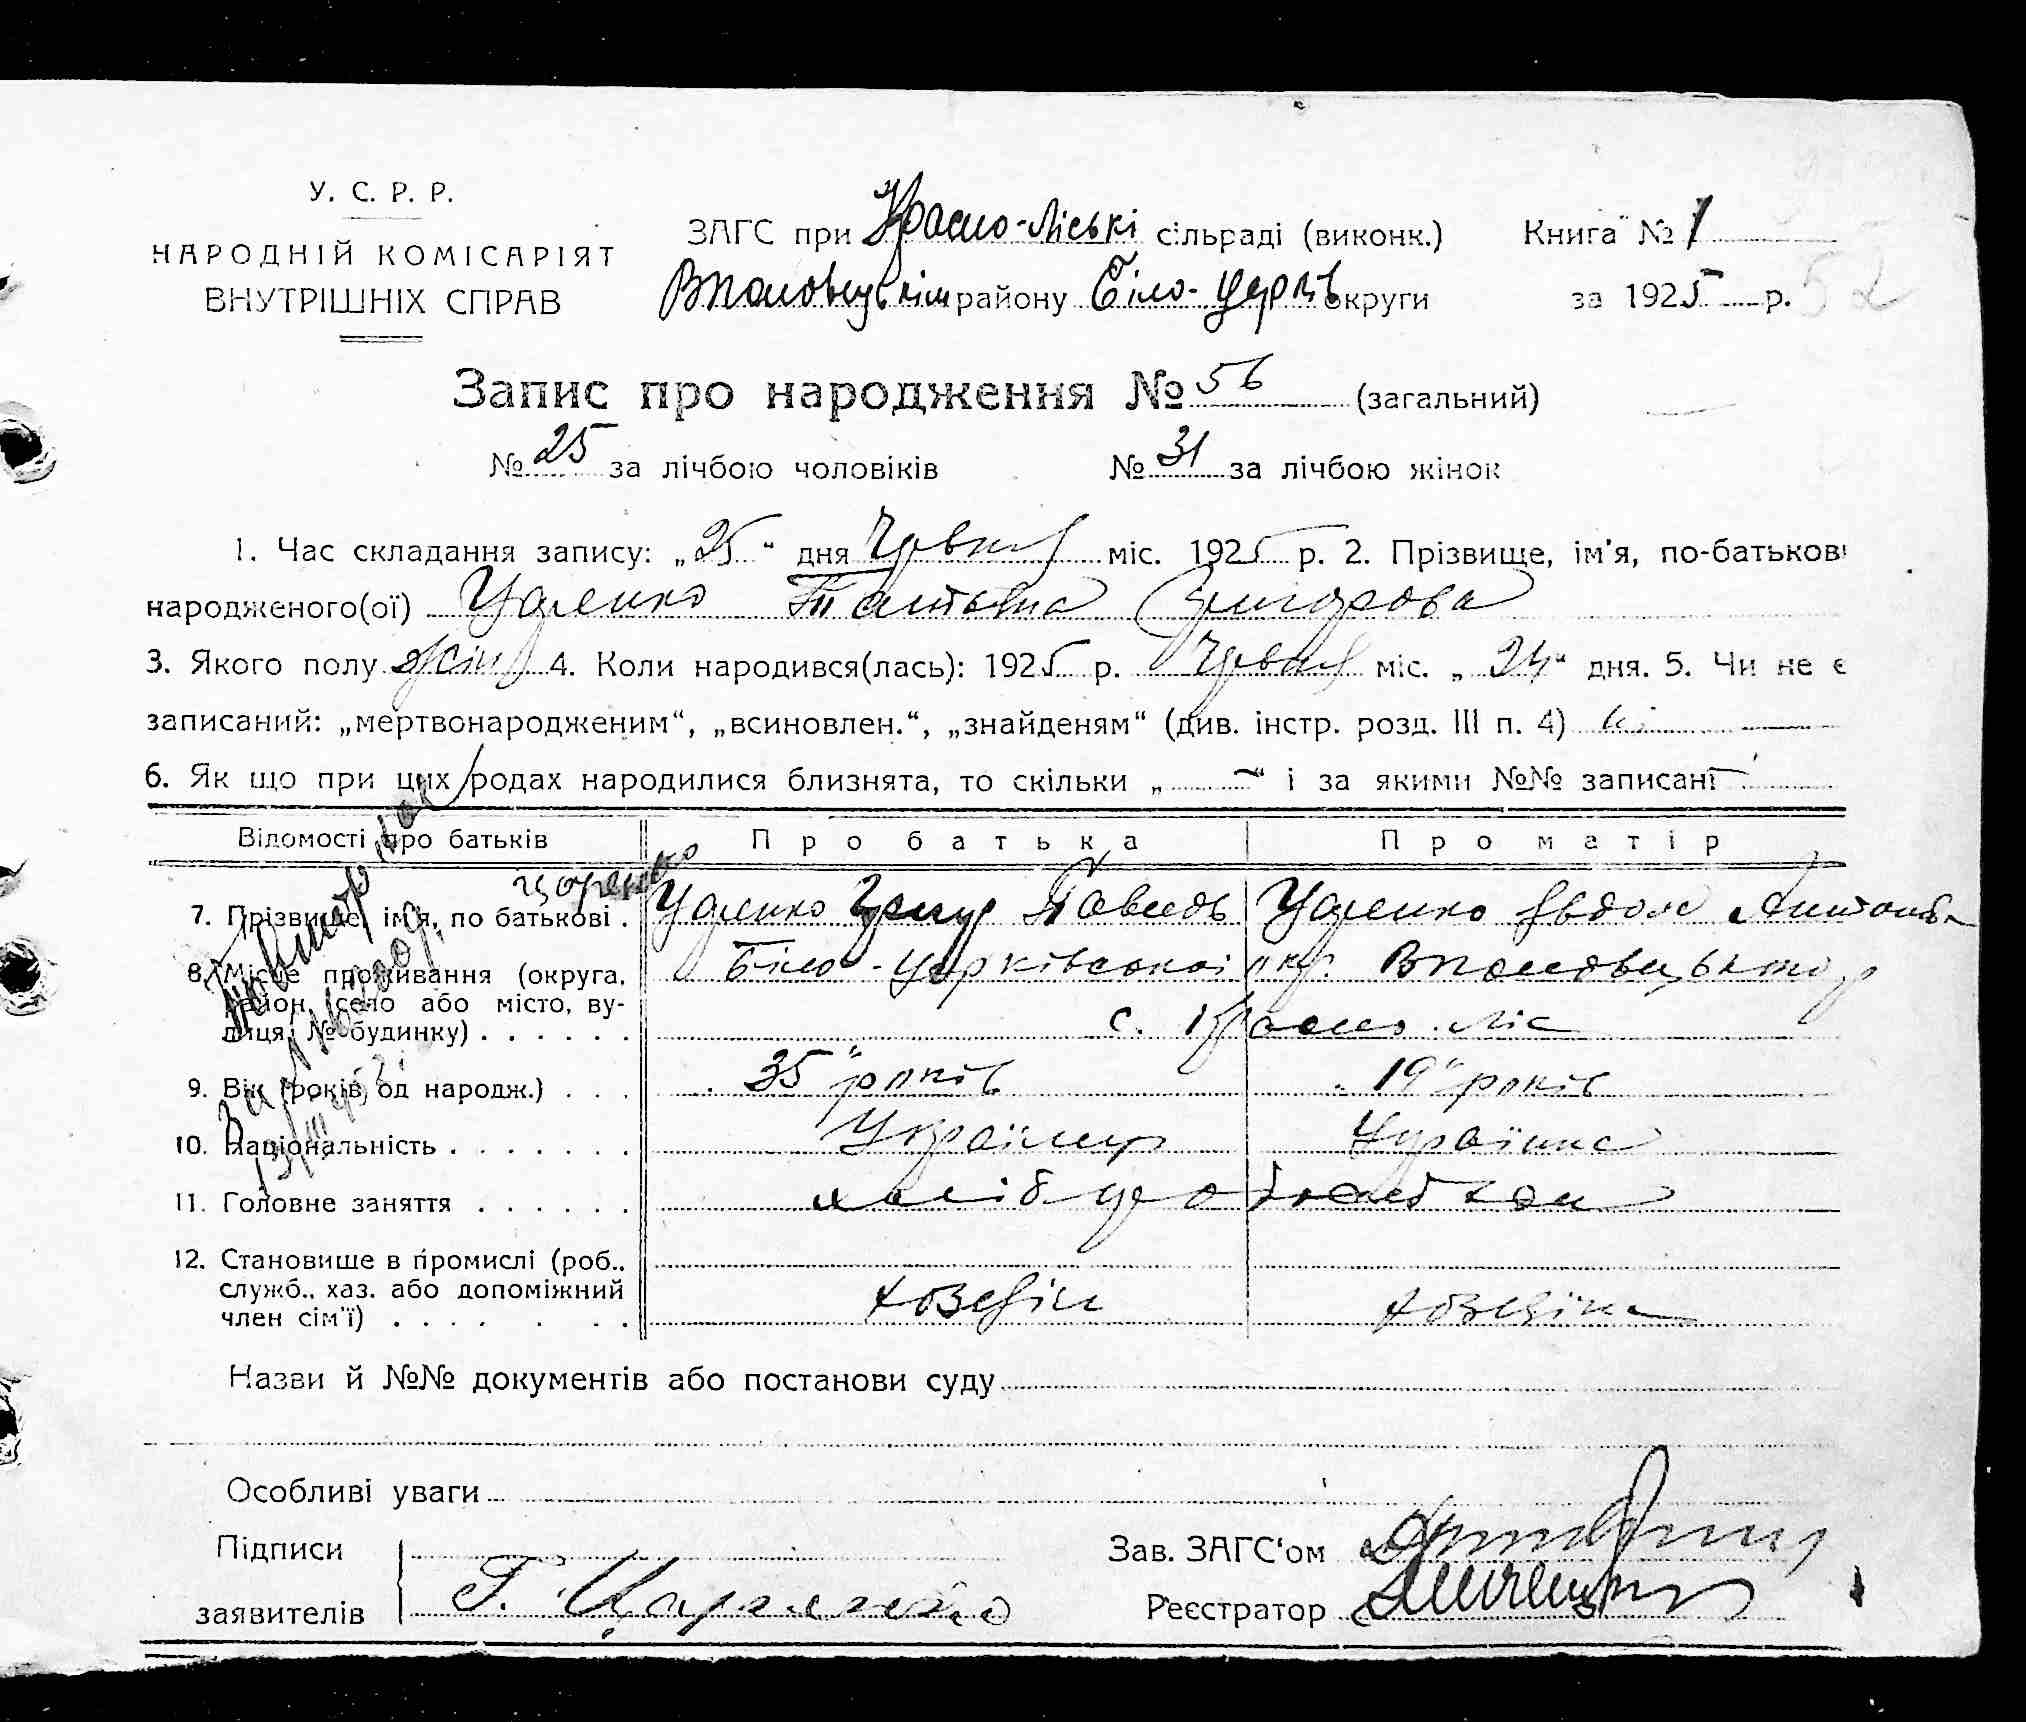 У. С. Р. Р.
НАРОДНІЙ КОМІСАРІЯТ
ВНУТРІШНІХ СПРАВ
ЗАГС при Красно-Ліські сільраді (виконк.) Книга № 1
району Біло-Церків округи за 1925 р.
52
Запис про народження № 56 (загальний)
№ 25 за лічбою чоловіків № 31 за лічбою жінок
1. Час складання запису: „25“ дня Червня міс. 1925 р. 2. Прізвище, ім'я, по-батькові
народженого(ої) Царенко Татьяна Григорова
3. Якого полу жін 4. Коли народився(лась): 1925 р. Червня міс. „24“ дня. 5. Чи не є
записаний: „мертвонародженим“, „всиновлен.“, „знайденям“ (див. інстр. розд. III п. 4) ні
6. Як що при цих родах народилися близнята, то скільки „—“ і за якими №№ записані —
Відомості про батьків Про батька Про матір
Царенко
7. Прізвище, ім'я, по батькові . Царенко Григор Павлов Царенко Євдок Антонов
8. Місце проживання (округа,
район, село або місто, ву-
лиця, № будинку) . . . . . .
Біло-Церківської окр.
с. Красно-Ліс
9. Вік (років од народж.) . . . 35 років 19 років
10. Національність . . . . . . . Українец Українка
11. Головне заняття . . . . . . хліборобство
12. Становище в промислі (роб.,
служб., хаз. або допоміжний
член сім'ї) . . . . . . .
хозяїн хозяїка
Назви й №№ документів або постанови суду
Особливі уваги
Підписи
заявителів Г. Царенко
Зав. ЗАГС'ом
Реєстратор